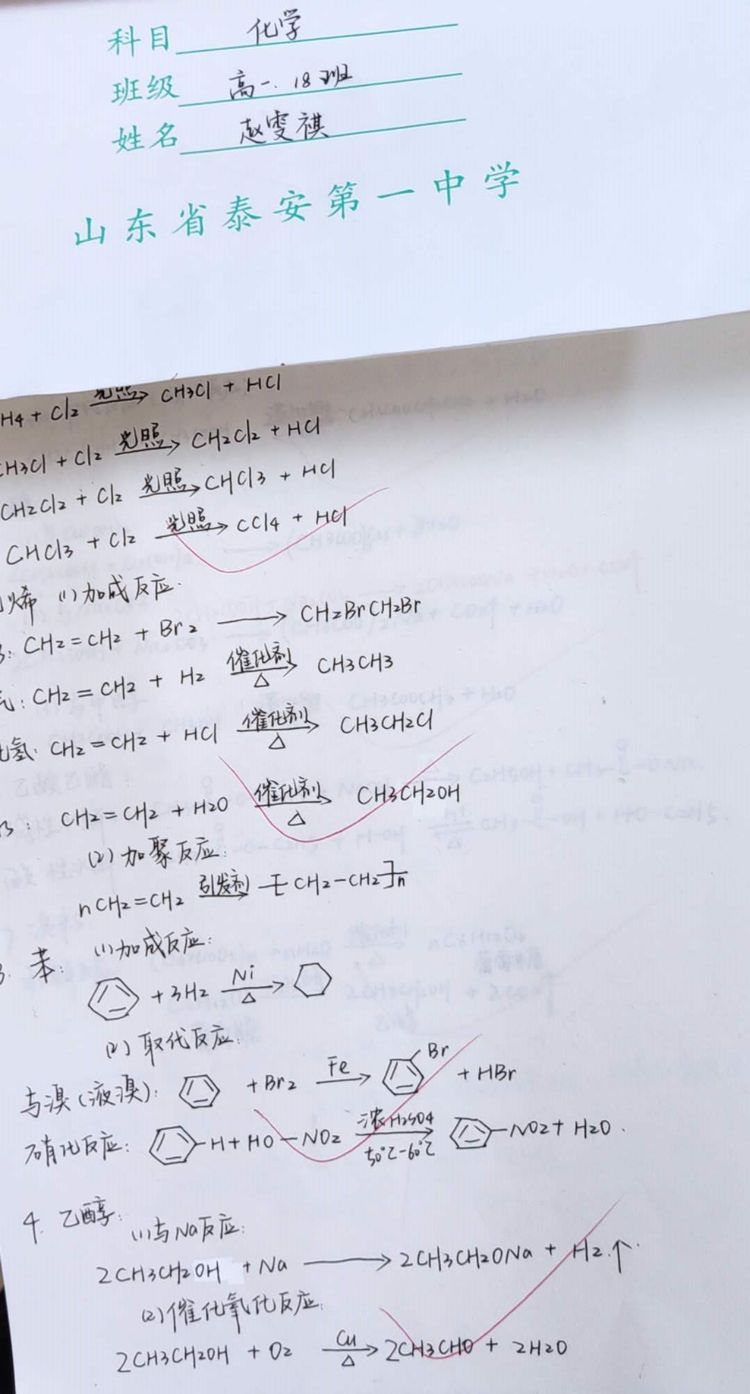 科目 化学
班级 高一.18班
姓名 赵雯祺
山东省泰安第一中学
H4 + Cl2 光照→ CH3Cl + HCl
CH3Cl + Cl2 光照→ CH2Cl2 + HCl
CH2Cl2 + Cl2 光照→ CHCl3 + HCl
CHCl3 + Cl2 光照→ CCl4 + HCl
烯 (1)加成反应.
CH2=CH2 + Br2 → CH2BrCH2Br
CH2=CH2 + H2 催化剂→△ CH3CH3
氢: CH2=CH2 + HCl 催化剂→△ CH3CH2Cl
CH2=CH2 + H2O 催化剂→△ CH3CH2OH
(2)加聚反应:
nCH2=CH2 引发剂→ -[CH2-CH2]n
3. 苯: (1)加成反应:
+3H2 Ni→△
(2)取代反应:
与溴(液溴): +Br2 Fe→ Br + HBr
硝化反应: -H + HO-NO2 浓H2SO4→50℃-60℃ -NO2 + H2O.
4. 乙醇: (1)与Na反应:
2CH3CH2OH + Na → 2CH3CH2ONa + H2↑
(2)催化氧化反应:
2CH3CH2OH + O2 Cu→△ 2CH3CHO + 2H2O